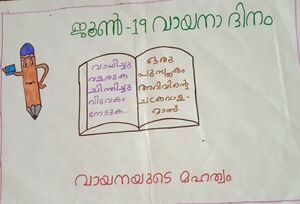 ജൂൺ -19 വായനാ ദിനം
വായിച്ചു
വളരുക
ചിന്തിച്ചു
വിവേകം
നേടുക...
ഒരു
പുസ്തകം
അറിവിന്റെ
ചക്രവാള-
മാണ്
വായനയുടെ മഹത്വം